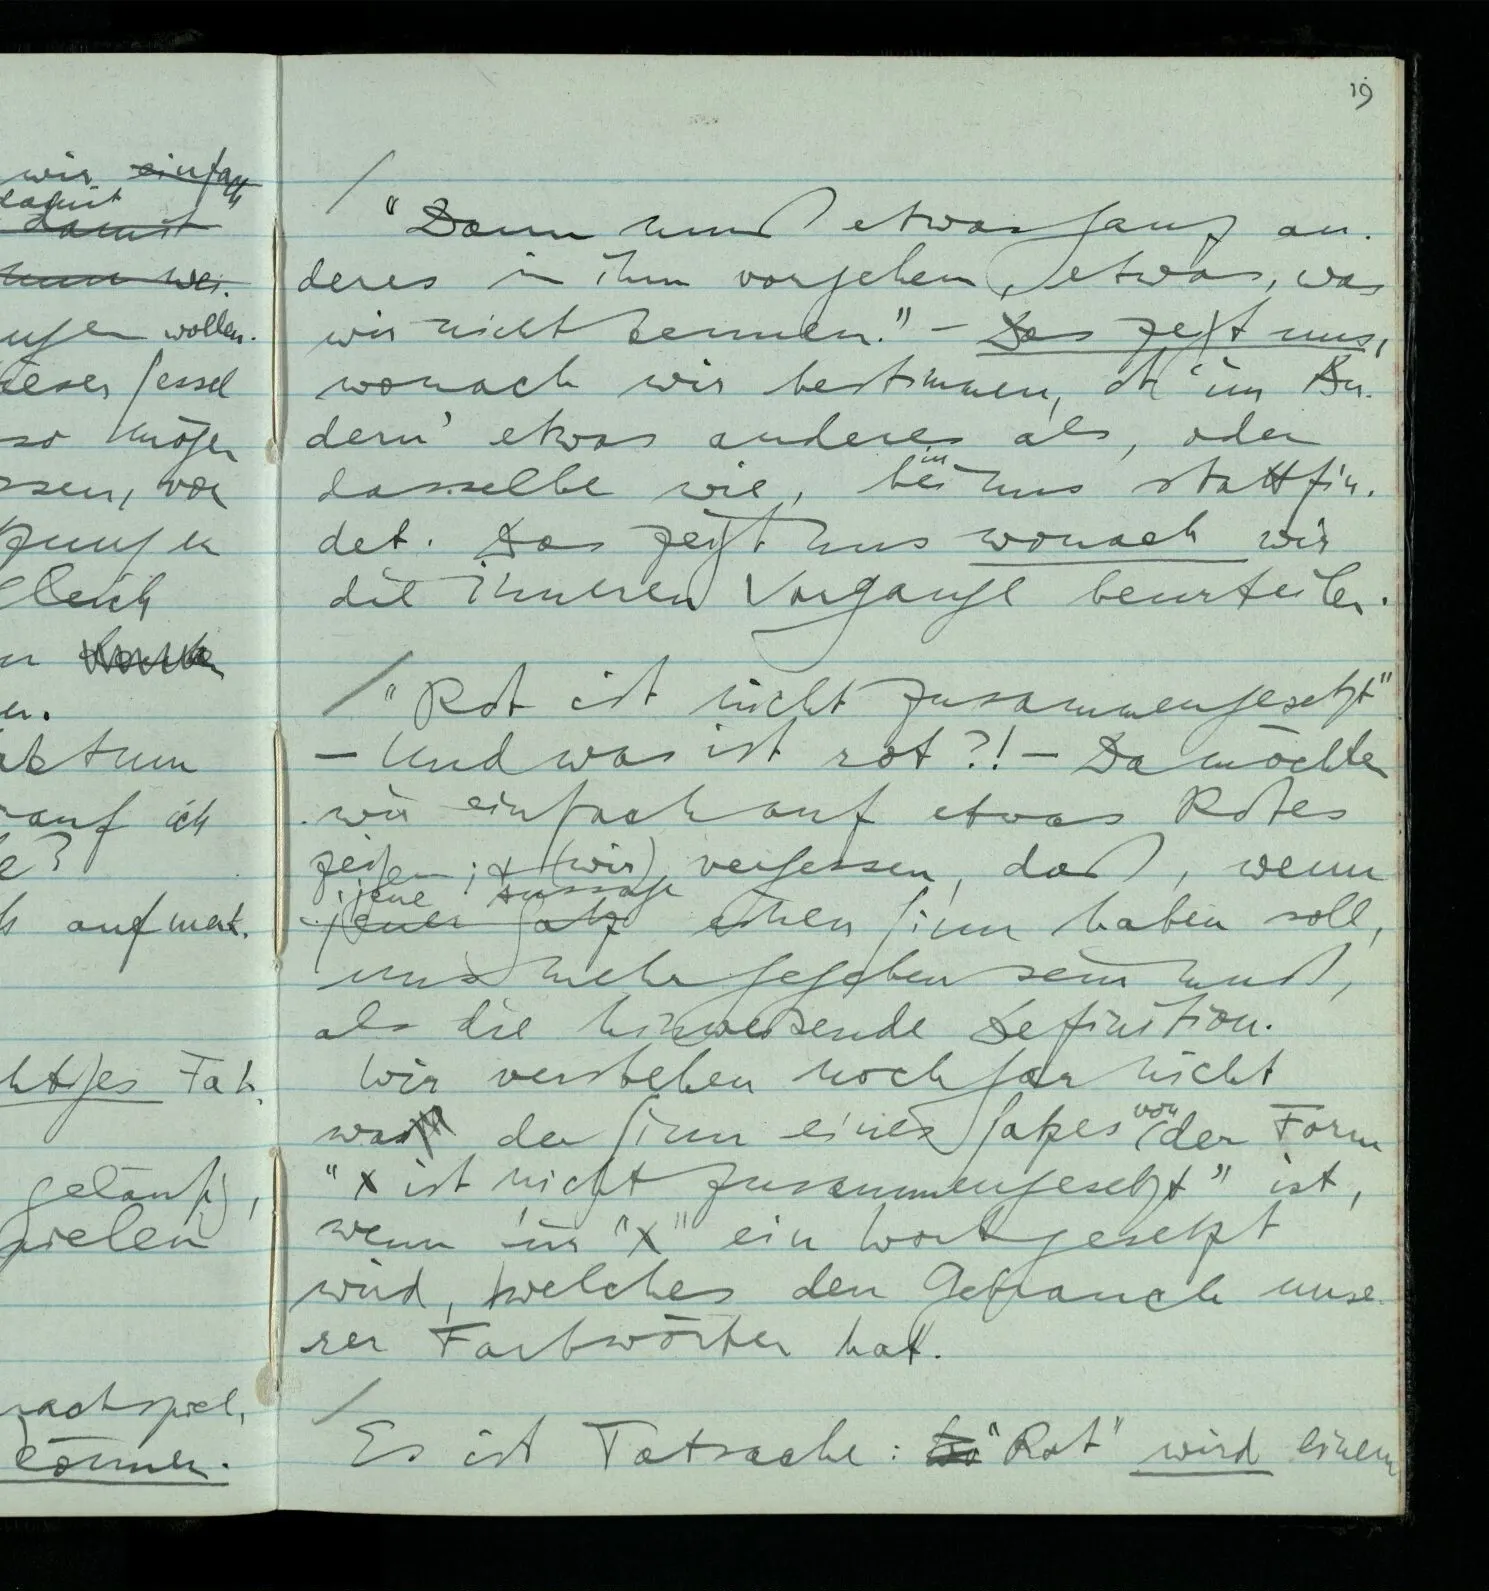 wir einfach
damit
damit
wollen.
dieser Sessel
so mögen
vor
gleich
auf ich
aufmerk.
Tat.
geläufig,
können.
19
/
"Dann muß etwas ganz an-
deres in ihm vorgehen, etwas, was
wir nicht kennen." – Das zeigt uns,
wonach wir bestimmen, ob 'im An-
dern' etwas anderes als, oder
in
dasselbe wie, bei uns stattfin-
det. Das zeigt uns wonach wir
die inneren Vorgänge beurteilen.
/ "Rot ist nicht zusammengesetzt"
– Und was ist rot?! – Da möchten
wir einfach auf etwas Rotes
zeigen; & (wir) vergessen, daß, wenn
jene Aussage
jener Satz einen Sinn haben soll,
uns mehr gegeben sein muß,
als die hinweisende Definition.
Wir verstehen noch gar nicht
von
was der Sinn eines Satzes der Form
"x ist nicht zusammengesetzt" ist,
wenn für "x" ein Wort gesetzt
wird, welches den Gebrauch unse-
rer Farbwörter hat.
/
Es ist Tatsache: "Rot" wird einem